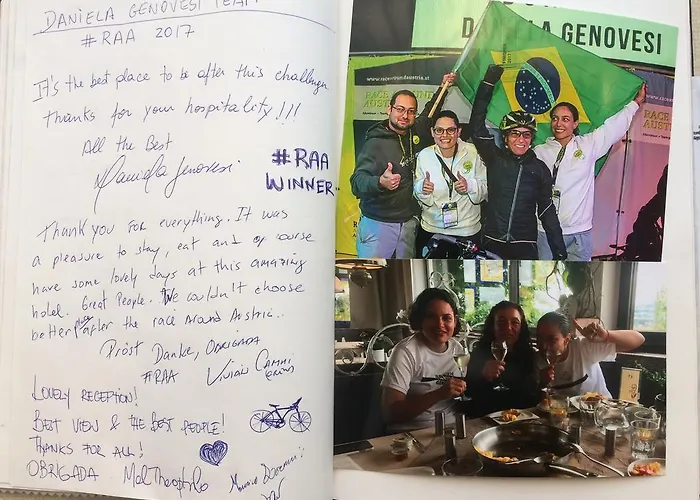 DANIELA GENOVESI TEAM
#RAA 2017
It's the best place to be after this challenge
thanks for your hospitality!!!
All the Best
Daniela Genovesi
#RAA
WINNER
Thank you for everything. It was
a pleasure to stay, eat and of course
have some lovely days at this amazing
hotel. Great People. We couldn't choose
better place after the race Around Austria..
Pröst Danke, OBRIGADA
#RAA Vivian
LOVELY RECEPTION!
BEST VIEW & THE BEST PEOPLE!
THANKS FOR ALL!
OBRIGADA
GENOVESI
www.racearoundaustria.at
RACE
AUSTRIA
RACE
AUSTRIA